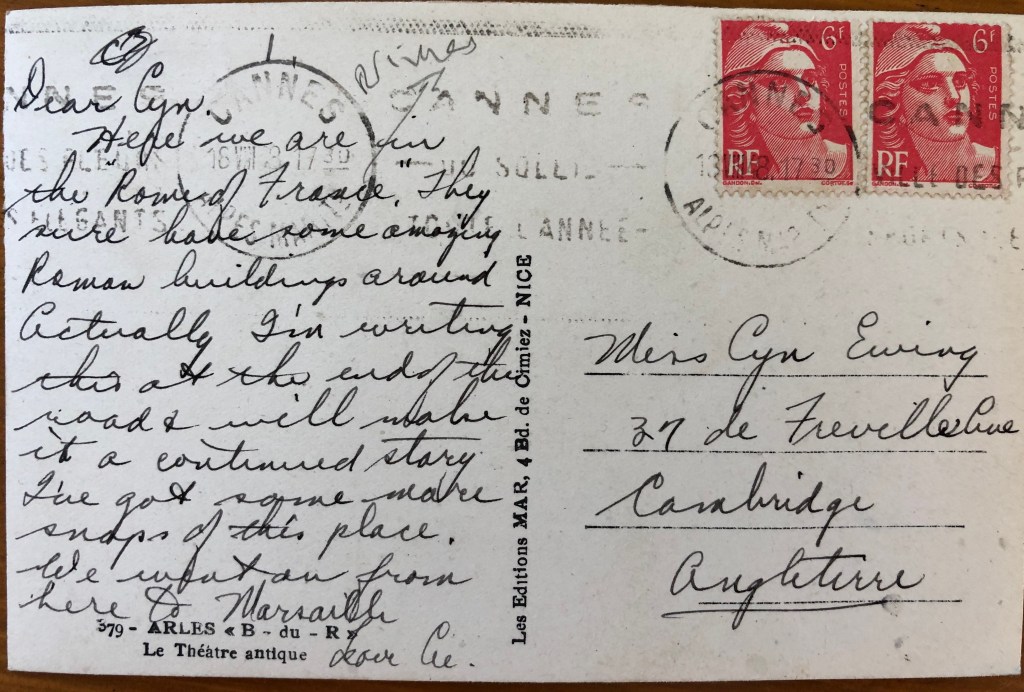 Nimes
Dear Cyn.
Here we are in
the "Rome of France." They
sure have some amazing
Roman buildings around
Actually I'm writing
this at the end of the
road & will make
it a continued story
I've got some more
snaps of this place.
We went on from
here to Marsaille
379 - ARLES « B - du - R »
Le Théâtre antique
Love
Les Editions MAR, 4 Bd. de Cimiez - NICE
CANNES
18 VIII 8.17 30
CANNES
SOLEIL
TOUTE L'ANNÉE
ELEGANTS
CANNES
17 30
6F
POSTES
RF
6F
POSTES
RF
CANN
VILLE DES
Miss Cyn Ewing
37 de Freville Ave
Cambridge
Angleterre